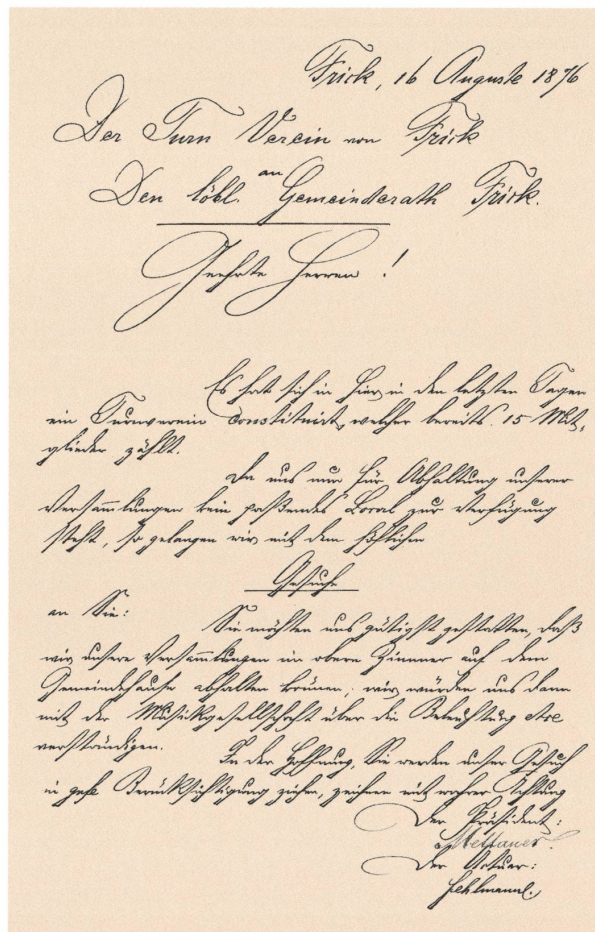 Frick, 16 Auguste 1876
Der Turn Verein von Frick
an
Den löbl. Gemeinderath Frick.
Geehrte Herren!
Es hat sich in hier in den letzten Tagen
ein Turnverein constituirt, welcher bereits 15 Mit-
glieder zählt.
Da uns nun für Abhaltung unserer
Versammlungen kein paßendes Local zur Verfügung
steht, so gelangen wir mit dem höflichen
Gesuche
an Sie: Sie möchten uns gütigst gestatten, daß
wir unsere Versammlungen im obern Zimmer auf dem
Gemeindehause abhalten können; wir würden uns dann
mit der Musikgesellschaft über die Beleuchtung etc
verständigen. In der Hoffnung, Sie werden unser Gesuch
in gefl. Berücksichtigung ziehen, zeichnen mit wahrer Achtung
Der Präsident:
Mettauer.
Der Actuar:
Fehlmann.